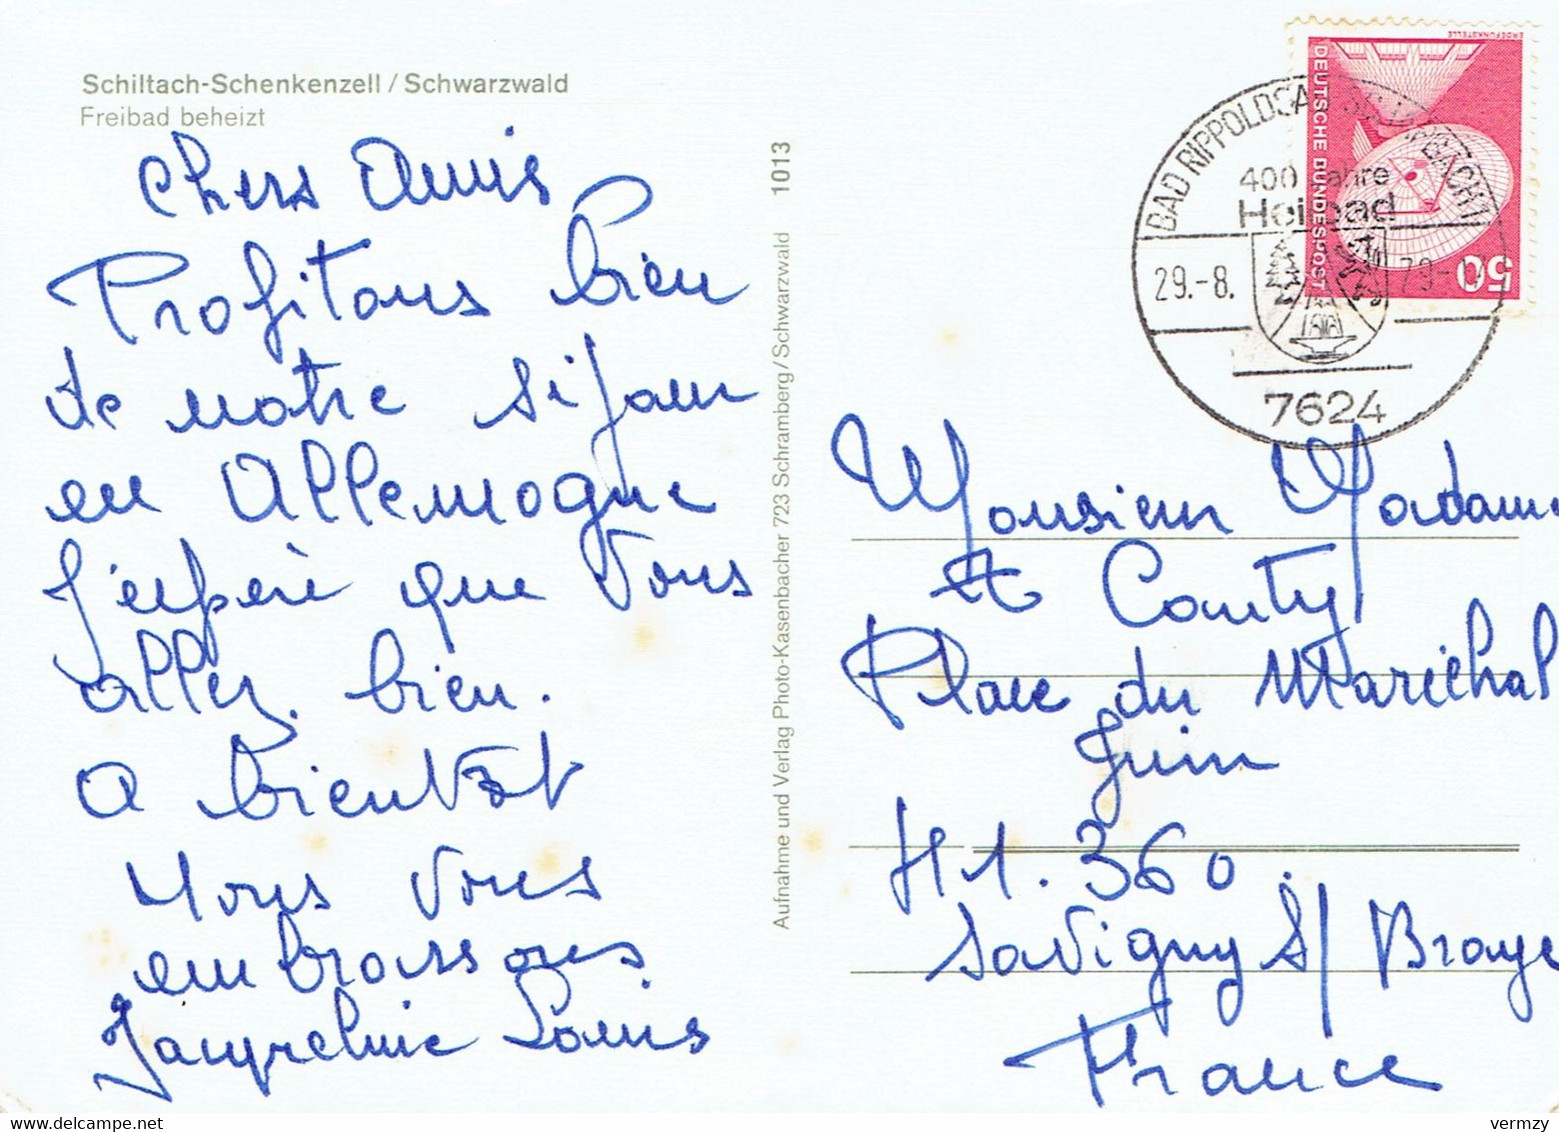 Schiltach-Schenkenzell / Schwarzwald
Freibad beheizt
chers Amis
Profitons bien
de notre séjour
en Allemagne
J'espère que vous
allez bien.
A bientôt
Nous vous
embrassons
Jacqueline Louis
1013
Aufnahme und Verlag Photo-Kasenbacher 723 Schramberg/Schwarzwald
ERDEFUNKSTELLE
DEUTSCHE BUNDESPOST
50
BAD RIPPOLDSAU
400 Jahre
Heilbad
29.-8. 79.-
7624
Monsieur Madame
et Couty
Place du Maréchal
Juin
41.360.
Savigny S/ Braye
France
vermzy